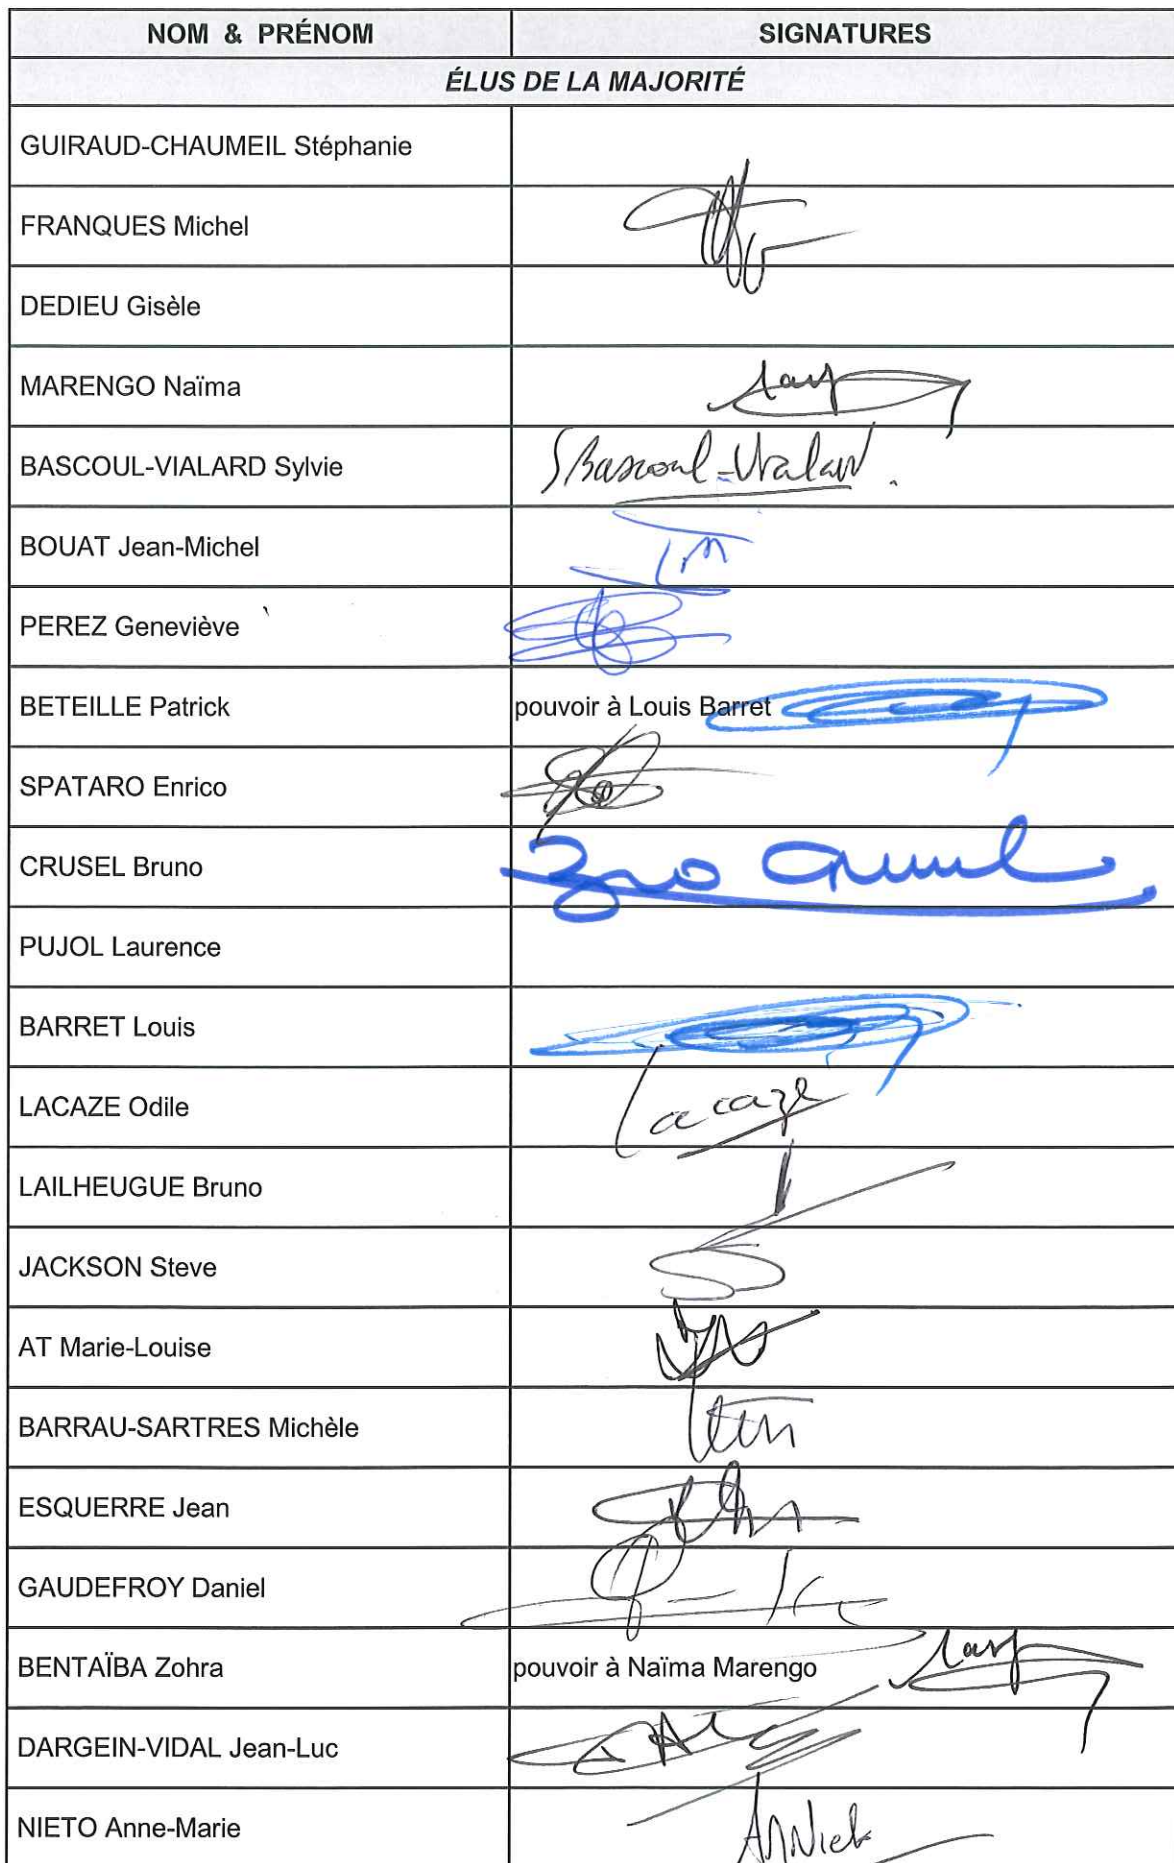 NOM & PRÉNOM SIGNATURES
ÉLUS DE LA MAJORITÉ
GUIRAUD-CHAUMEIL Stéphanie
FRANQUES Michel
DEDIEU Gisèle
MARENGO Naïma
BASCOUL-VIALARD Sylvie SBascoul-Vialard.
BOUAT Jean-Michel
PEREZ Geneviève
BETEILLE Patrick pouvoir à Louis Barret
SPATARO Enrico
CRUSEL Bruno
PUJOL Laurence
BARRET Louis
LACAZE Odile Lacaze
LAILHEUGUE Bruno
JACKSON Steve
AT Marie-Louise
BARRAU-SARTRES Michèle
ESQUERRE Jean
GAUDEFROY Daniel
BENTAÏBA Zohra pouvoir à Naïma Marengo
DARGEIN-VIDAL Jean-Luc
NIETO Anne-Marie